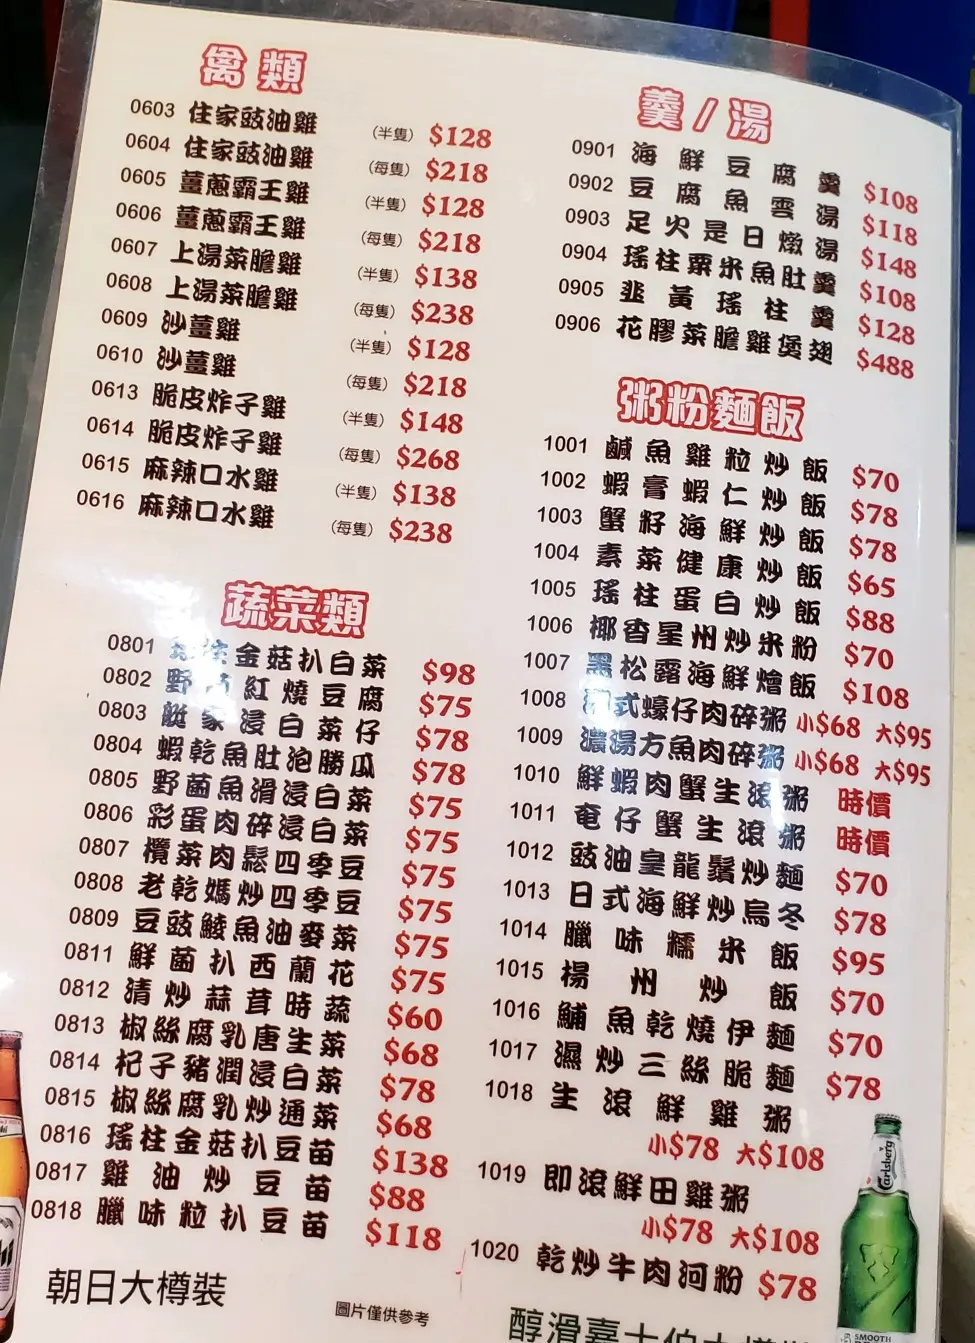 禽類
0603 住家豉油雞 (半隻) $128
0604 住家豉油雞 (每隻) $218
0605 薑蔥霸王雞 (半隻) $128
0606 薑蔥霸王雞 (每隻) $218
0607 上湯菜膽雞 (半隻) $138
0608 上湯菜膽雞 (每隻) $238
0609 沙薑雞 (半隻) $128
0610 沙薑雞 (每隻) $218
0613 脆皮炸子雞 (半隻) $148
0614 脆皮炸子雞 (每隻) $268
0615 麻辣口水雞 (半隻) $138
0616 麻辣口水雞 (每隻) $238
蔬菜類
0801 柱金菇扒白菜 $98
0802 野紅燒豆腐 $75
0803 艇家浸白菜仔 $78
0804 蝦乾魚肚泡勝瓜 $78
0805 野菌魚滑浸白菜 $75
0806 彩蛋肉碎浸白菜 $75
0807 欖菜肉鬆四季豆 $75
0808 老乾媽炒四季豆 $75
0809 豆豉鯪魚油麥菜 $75
0811 鮮菌扒西蘭花 $75
0812 清炒蒜茸時蔬 $60
0813 椒絲腐乳唐生菜 $68
0814 杞子豬潤浸白菜 $78
0815 椒絲腐乳炒通菜 $68
0816 瑤柱金菇扒豆苗 $138
0817 雞油炒豆苗 $88
0818 臘味粒扒豆苗 $118
朝日大樽裝
圖片僅供參考
羹/湯
0901 海鮮豆腐羹 $108
0902 豆腐魚雲湯 $118
0903 足火是日燉湯 $148
0904 瑤柱粟米魚肚羹 $108
0905 韭黃瑤柱羹 $128
0906 花膠菜膽雞煲翅 $488
粥粉麵飯
1001 鹹魚雞粒炒飯 $70
1002 蝦膏蝦仁炒飯 $78
1003 蟹籽海鮮炒飯 $78
1004 素菜健康炒飯 $65
1005 瑤柱蛋白炒飯 $88
1006 椰香星州炒米粉 $70
1007 黑松露海鮮燴飯 $108
1008 式蠔仔肉碎粥 小$68 大$95
1009 濃湯方魚肉碎粥 小$68 大$95
1010 鮮蝦肉蟹生滾粥 時價
1011 奄仔蟹生滾粥 時價
1012 豉油皇龍鬚炒麵 $70
1013 日式海鮮炒烏冬 $78
1014 臘味糯米飯 $95
1015 揚州炒飯 $70
1016 鯆魚乾燒伊麵 $70
1017 濕炒三絲脆麵 $78
1018 生滾鮮雞粥
小$78 大$108
1019 即滾鮮田雞粥
小$78 大$108
1020 乾炒牛肉河粉 $78
Carlsberg
SMOOTH
醇滑嘉士伯大樽